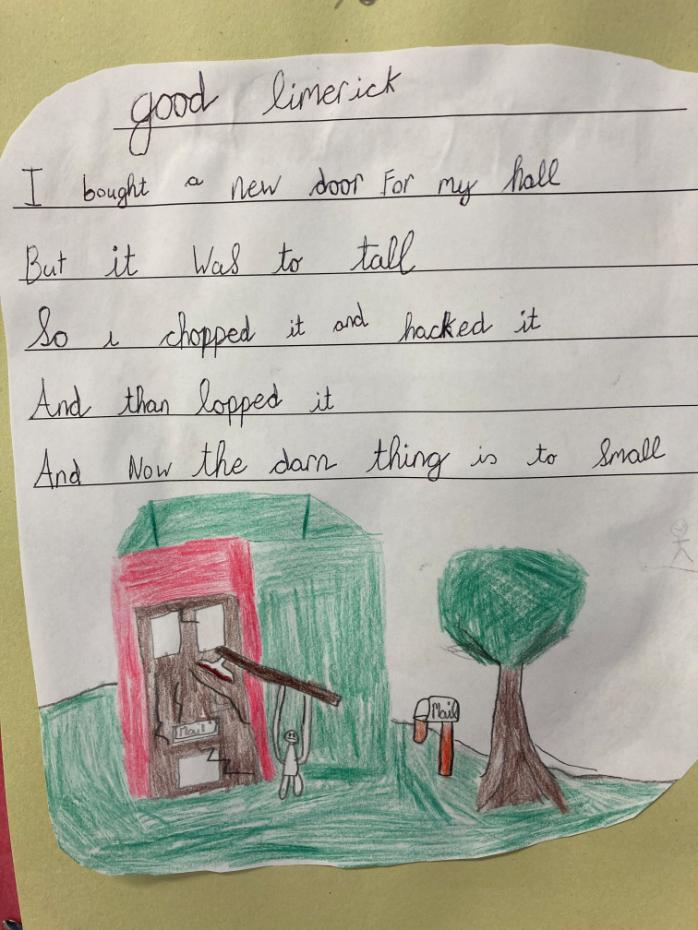 good limerick
I bought a new door For my hall
But it was to tall
So i chopped it and hacked it
And than lopped it
And Now the darn thing is to small
Mail
Mail